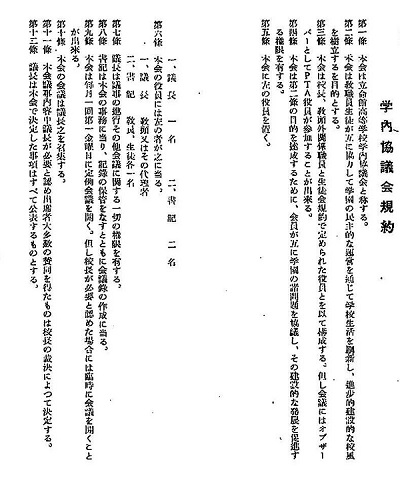 学內協議会規約
第一條　本会は立命館高等学校学内協議会と称する。
第二條　本会は教職員生徒が互に協力して学園の民主的な運営を通じて学校生活を刷新し、進歩的建設的な校風
を樹立するを目的とする。
第三條　本会は校長、教頭外関係職員と生徒会規約で定められた役員とを以て構成する。但し会議にはオブザー
バーとしてPTA役員が参加することが出來る。
第四條　本会は第二條の目的を達成するために、会員が互に学園の諸問題を協議し、その建設的な発展を促進す
る権限を有する。
第五條　本会に左の役員を置く。
一、議長　一名　二、書記　二名
第六條　本会の役員には左の者が之に当る。
一、議長　教頭又はその代理者
二、書記　教員、生徒各一名
第七條　議長は議事の進行その他会議に関する一切の権限を有する。
第八條　書記は本会の事務に当り、記録の保管をなすとともに会議録の作成に当る。
第九條　本会は毎月一回第一金曜日に定例会議を開く。但し校長が必要と認めた場合には臨時に会議を開くこと
が出來る。
第十條　本会の会議は議長之を召集する。
第十一條　本会議事内容中議長が必要と認め出席者大多数の賛同を得たものは校長の裁決によつて決定する。
第十二條　議長は本会で決定した事項はすべて公表するものとする。